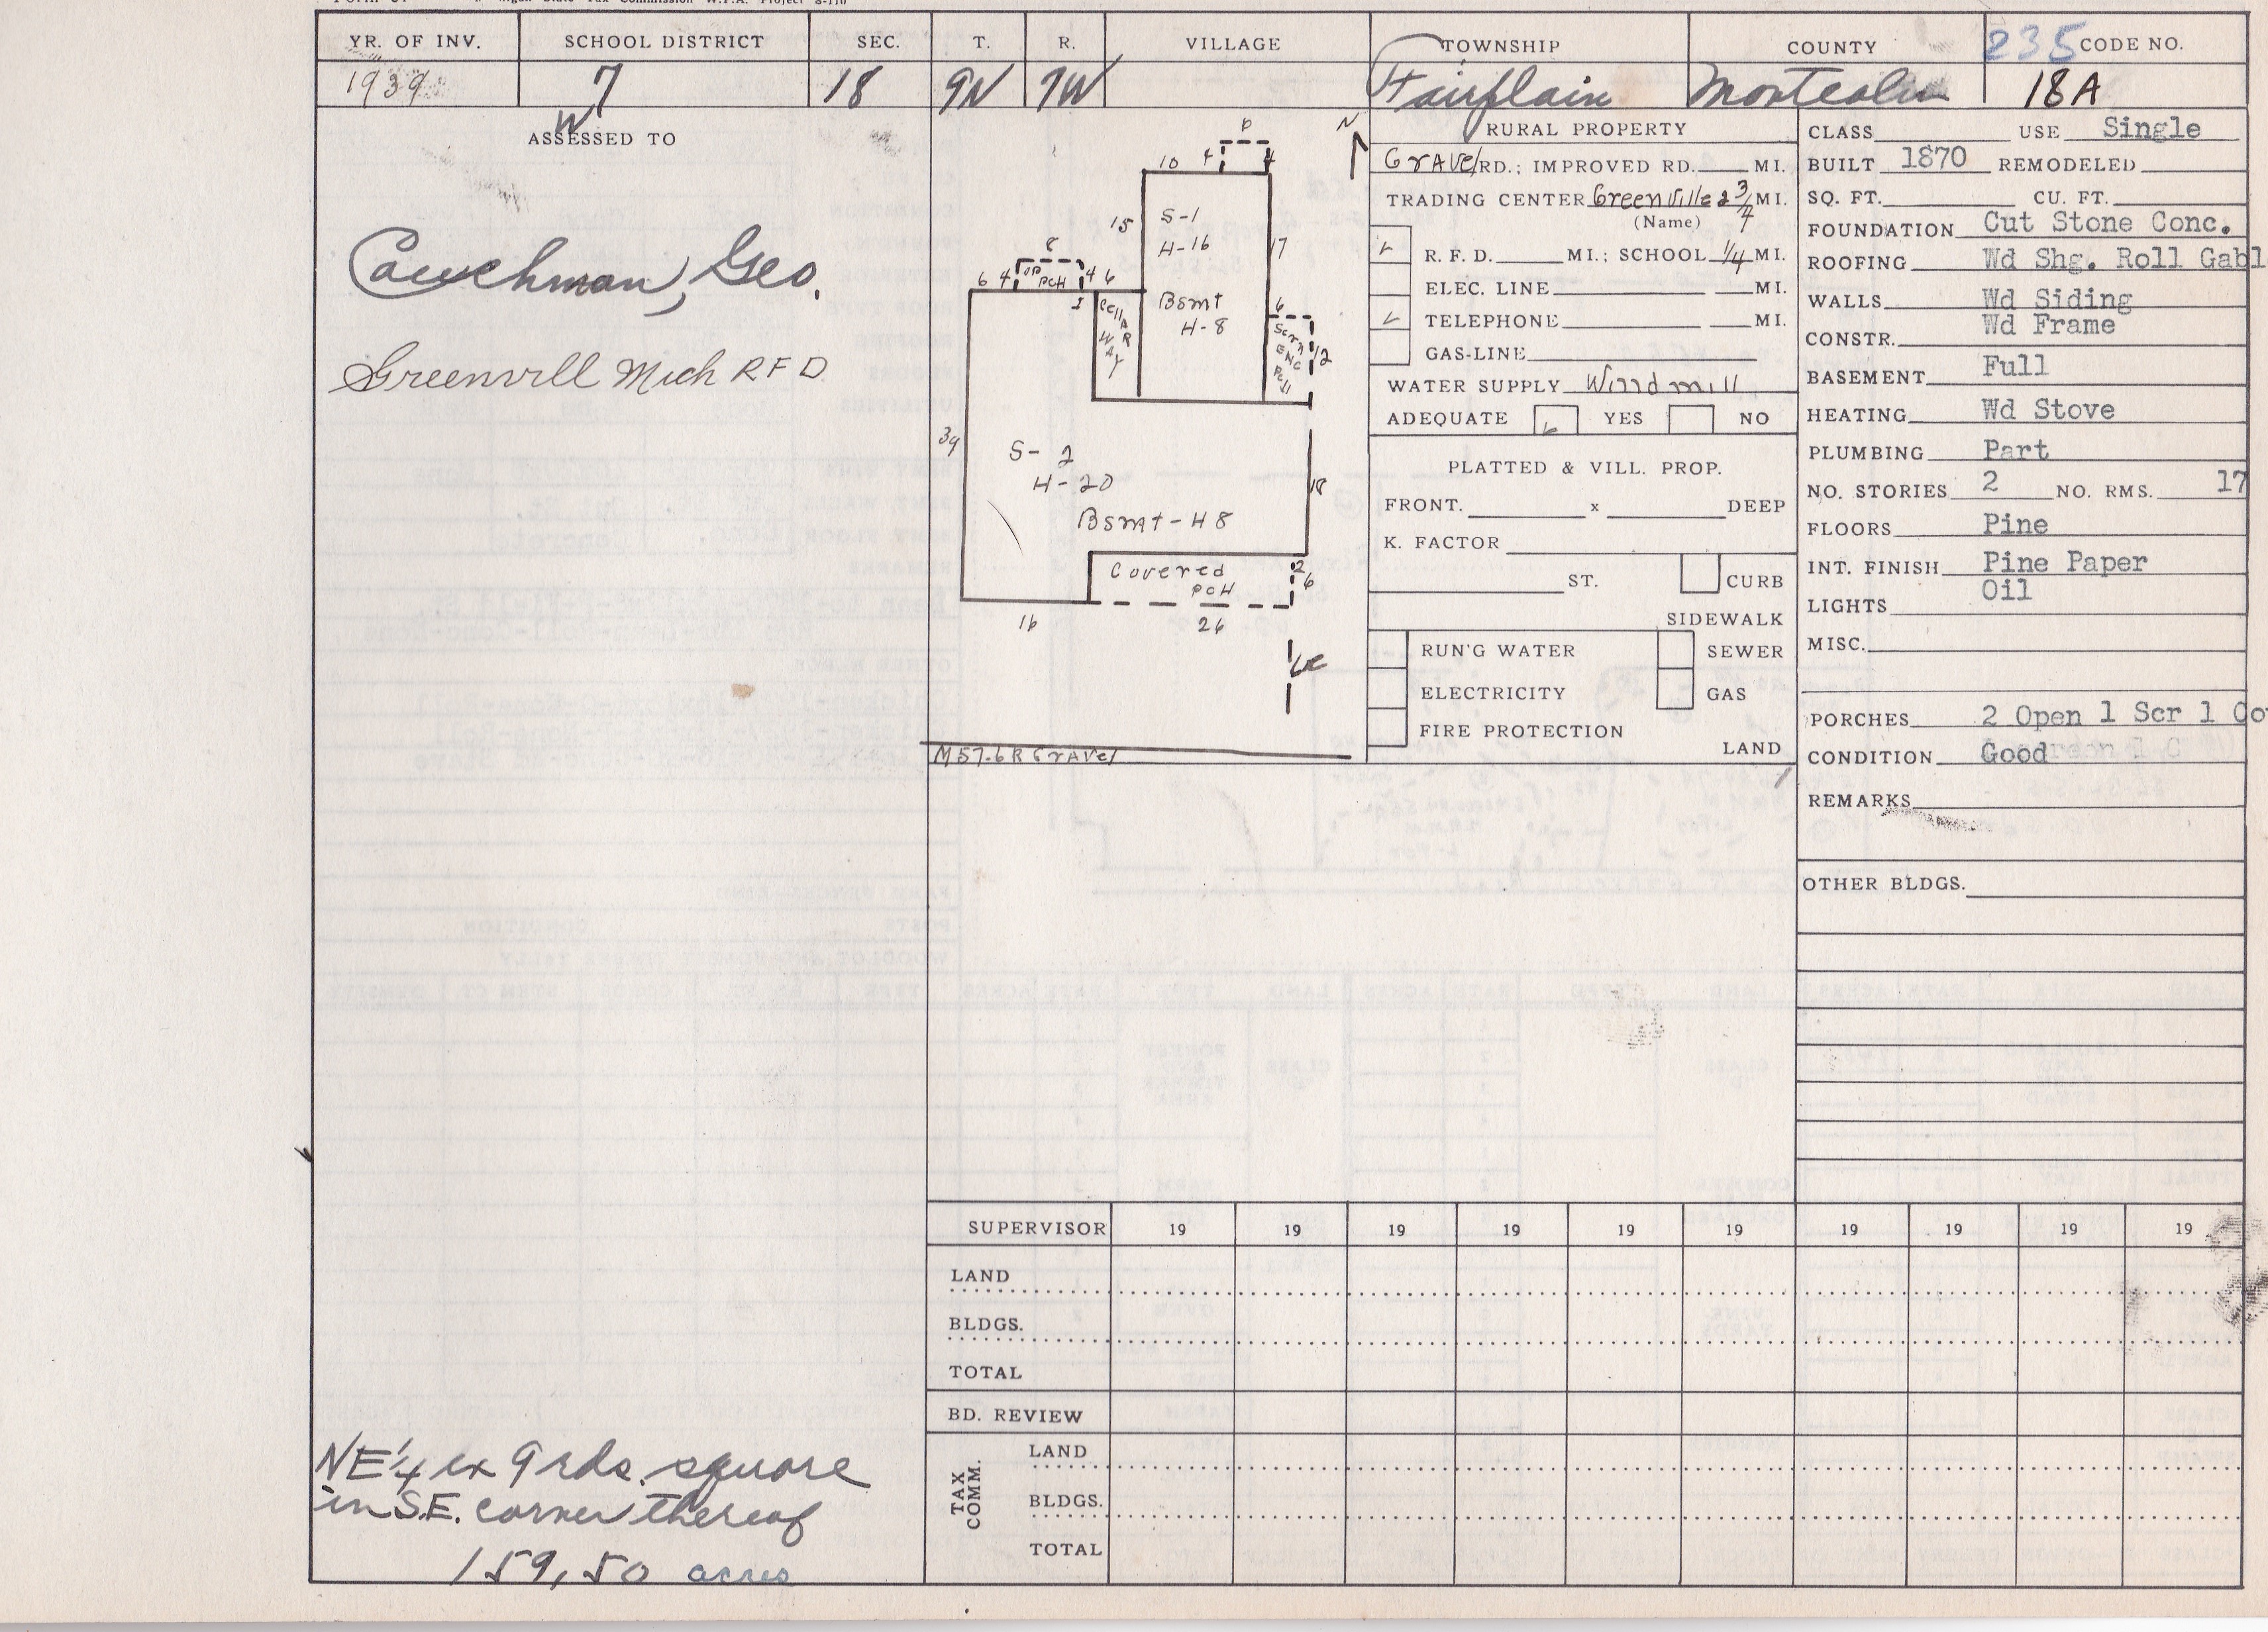 Tax Commission W.P.A. Project
YR. OF INV. SCHOOL DISTRICT SEC. T. R. VILLAGE TOWNSHIP COUNTY 235 CODE NO.
1939 7 18 9N 7W Fairplain Montcalm 18A
W
ASSESSED TO
Geo.
Greenvill Mich R F D
NE 1/4 ex 9 rds. square
in S.E. corner thereof
159,50 acres
N
6
10 4 4
15 S-1
H-16 17
8
6 4 OP PCH 4 6
Bsmt
H-8
CellAR WAY
6
Scrn ENC PCH 12
39
S-2
H-20
Bsmt-H8
18
Covered
PCH
2
6
16 26
M57.6R GrAvel
RURAL PROPERTY
GrAvel RD.; IMPROVED RD. MI.
TRADING CENTER Greenville 2 3/4 MI.
(Name)
R. F. D. MI.; SCHOOL 1/4 MI.
ELEC. LINE MI.
TELEPHONE MI.
GAS-LINE
WATER SUPPLY Windmill
ADEQUATE YES NO
PLATTED & VILL. PROP.
FRONT. x DEEP
K. FACTOR
ST. CURB
SIDEWALK
RUN'G WATER SEWER
ELECTRICITY GAS
FIRE PROTECTION
LAND
CLASS USE Single
BUILT 1870 REMODELED
SQ. FT. CU. FT.
FOUNDATION Cut Stone Conc.
ROOFING Wd Shg. Roll Gabl
WALLS Wd Siding
CONSTR. Wd Frame
BASEMENT Full
HEATING Wd Stove
PLUMBING Part
NO. STORIES 2 NO. RMS. 17
FLOORS Pine
INT. FINISH Pine Paper
LIGHTS Oil
MISC.
PORCHES 2 Open 1 Scr 1 Co
CONDITION Good
REMARKS
OTHER BLDGS.
SUPERVISOR 19 19 19 19 19 19 19 19 19 19
LAND
BLDGS.
TOTAL
BD. REVIEW
TAX COMM.
LAND
BLDGS.
TOTAL